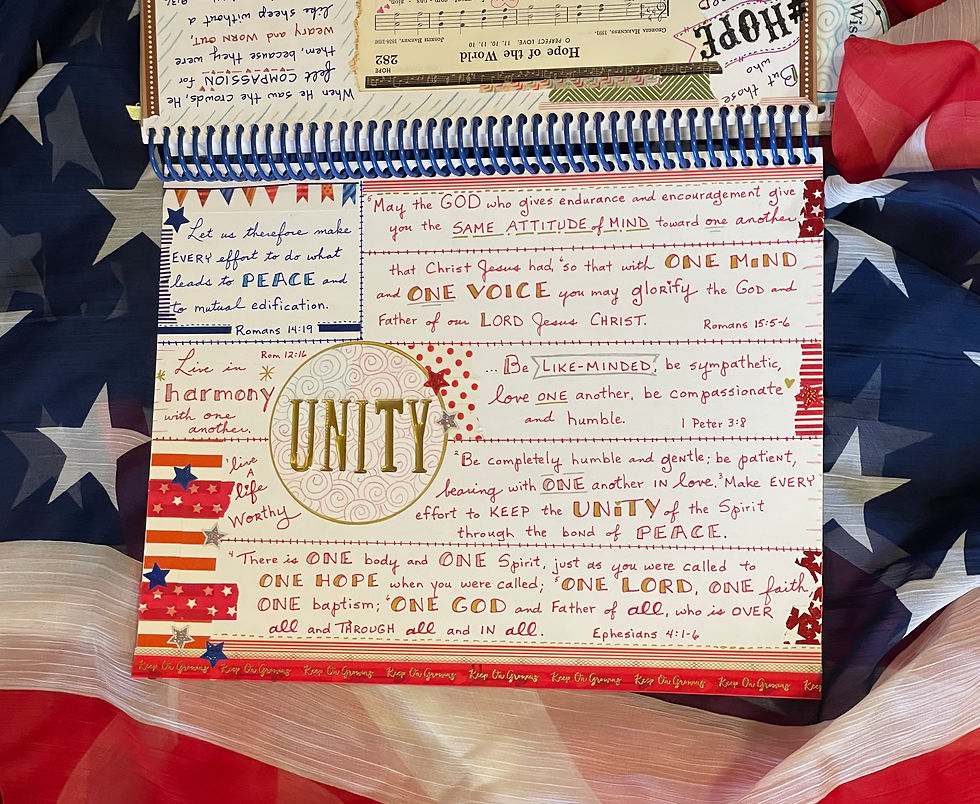 When He saw the crowds, He
felt COMPASSION for
them, because they were
weary and WORN OUT,
like sheep without a
HOPE
282
Hope of the World
O PERFECT LOVE. 11. 10. 11. 10
#HOPE
But
those
who
Wis
⁵May the GOD who gives endurance and encouragement give
you the SAME ATTITUDE of MIND toward one another
that Christ Jesus had, ⁶so that with ONE MIND
and ONE VOICE you may glorify the GOD and
Father of our LORD Jesus CHRIST.
Romans 15:5-6
Let us therefore make
EVERY effort to do what
leads to PEACE and
to mutual edification.
Romans 14:19
Rom 12:16
Live in
harmony
with one
another.
UNITY
... Be LIKE-MINDED, be sympathetic,
love ONE another, be compassionate
and humble.
1 Peter 3:8
'live
A
life
Worthy
²Be completely humble and gentle; be patient,
bearing with ONE another IN love. ³Make EVERY
effort to KEEP the UNITY of the Spirit
through the bond of PEACE.
⁴There is ONE body and ONE Spirit, just as you were called to
ONE HOPE when you were called; ⁵ONE LORD, ONE faith,
ONE baptism; ⁶ONE GOD and Father of all, who is OVER
all and THROUGH all and IN all.
Ephesians 4:1-6
Keep On Growing Keep On Growing Keep On Growing Keep On Growing Keep On Growing Keep On Growing Keep On Growing Keep On Growing Keep